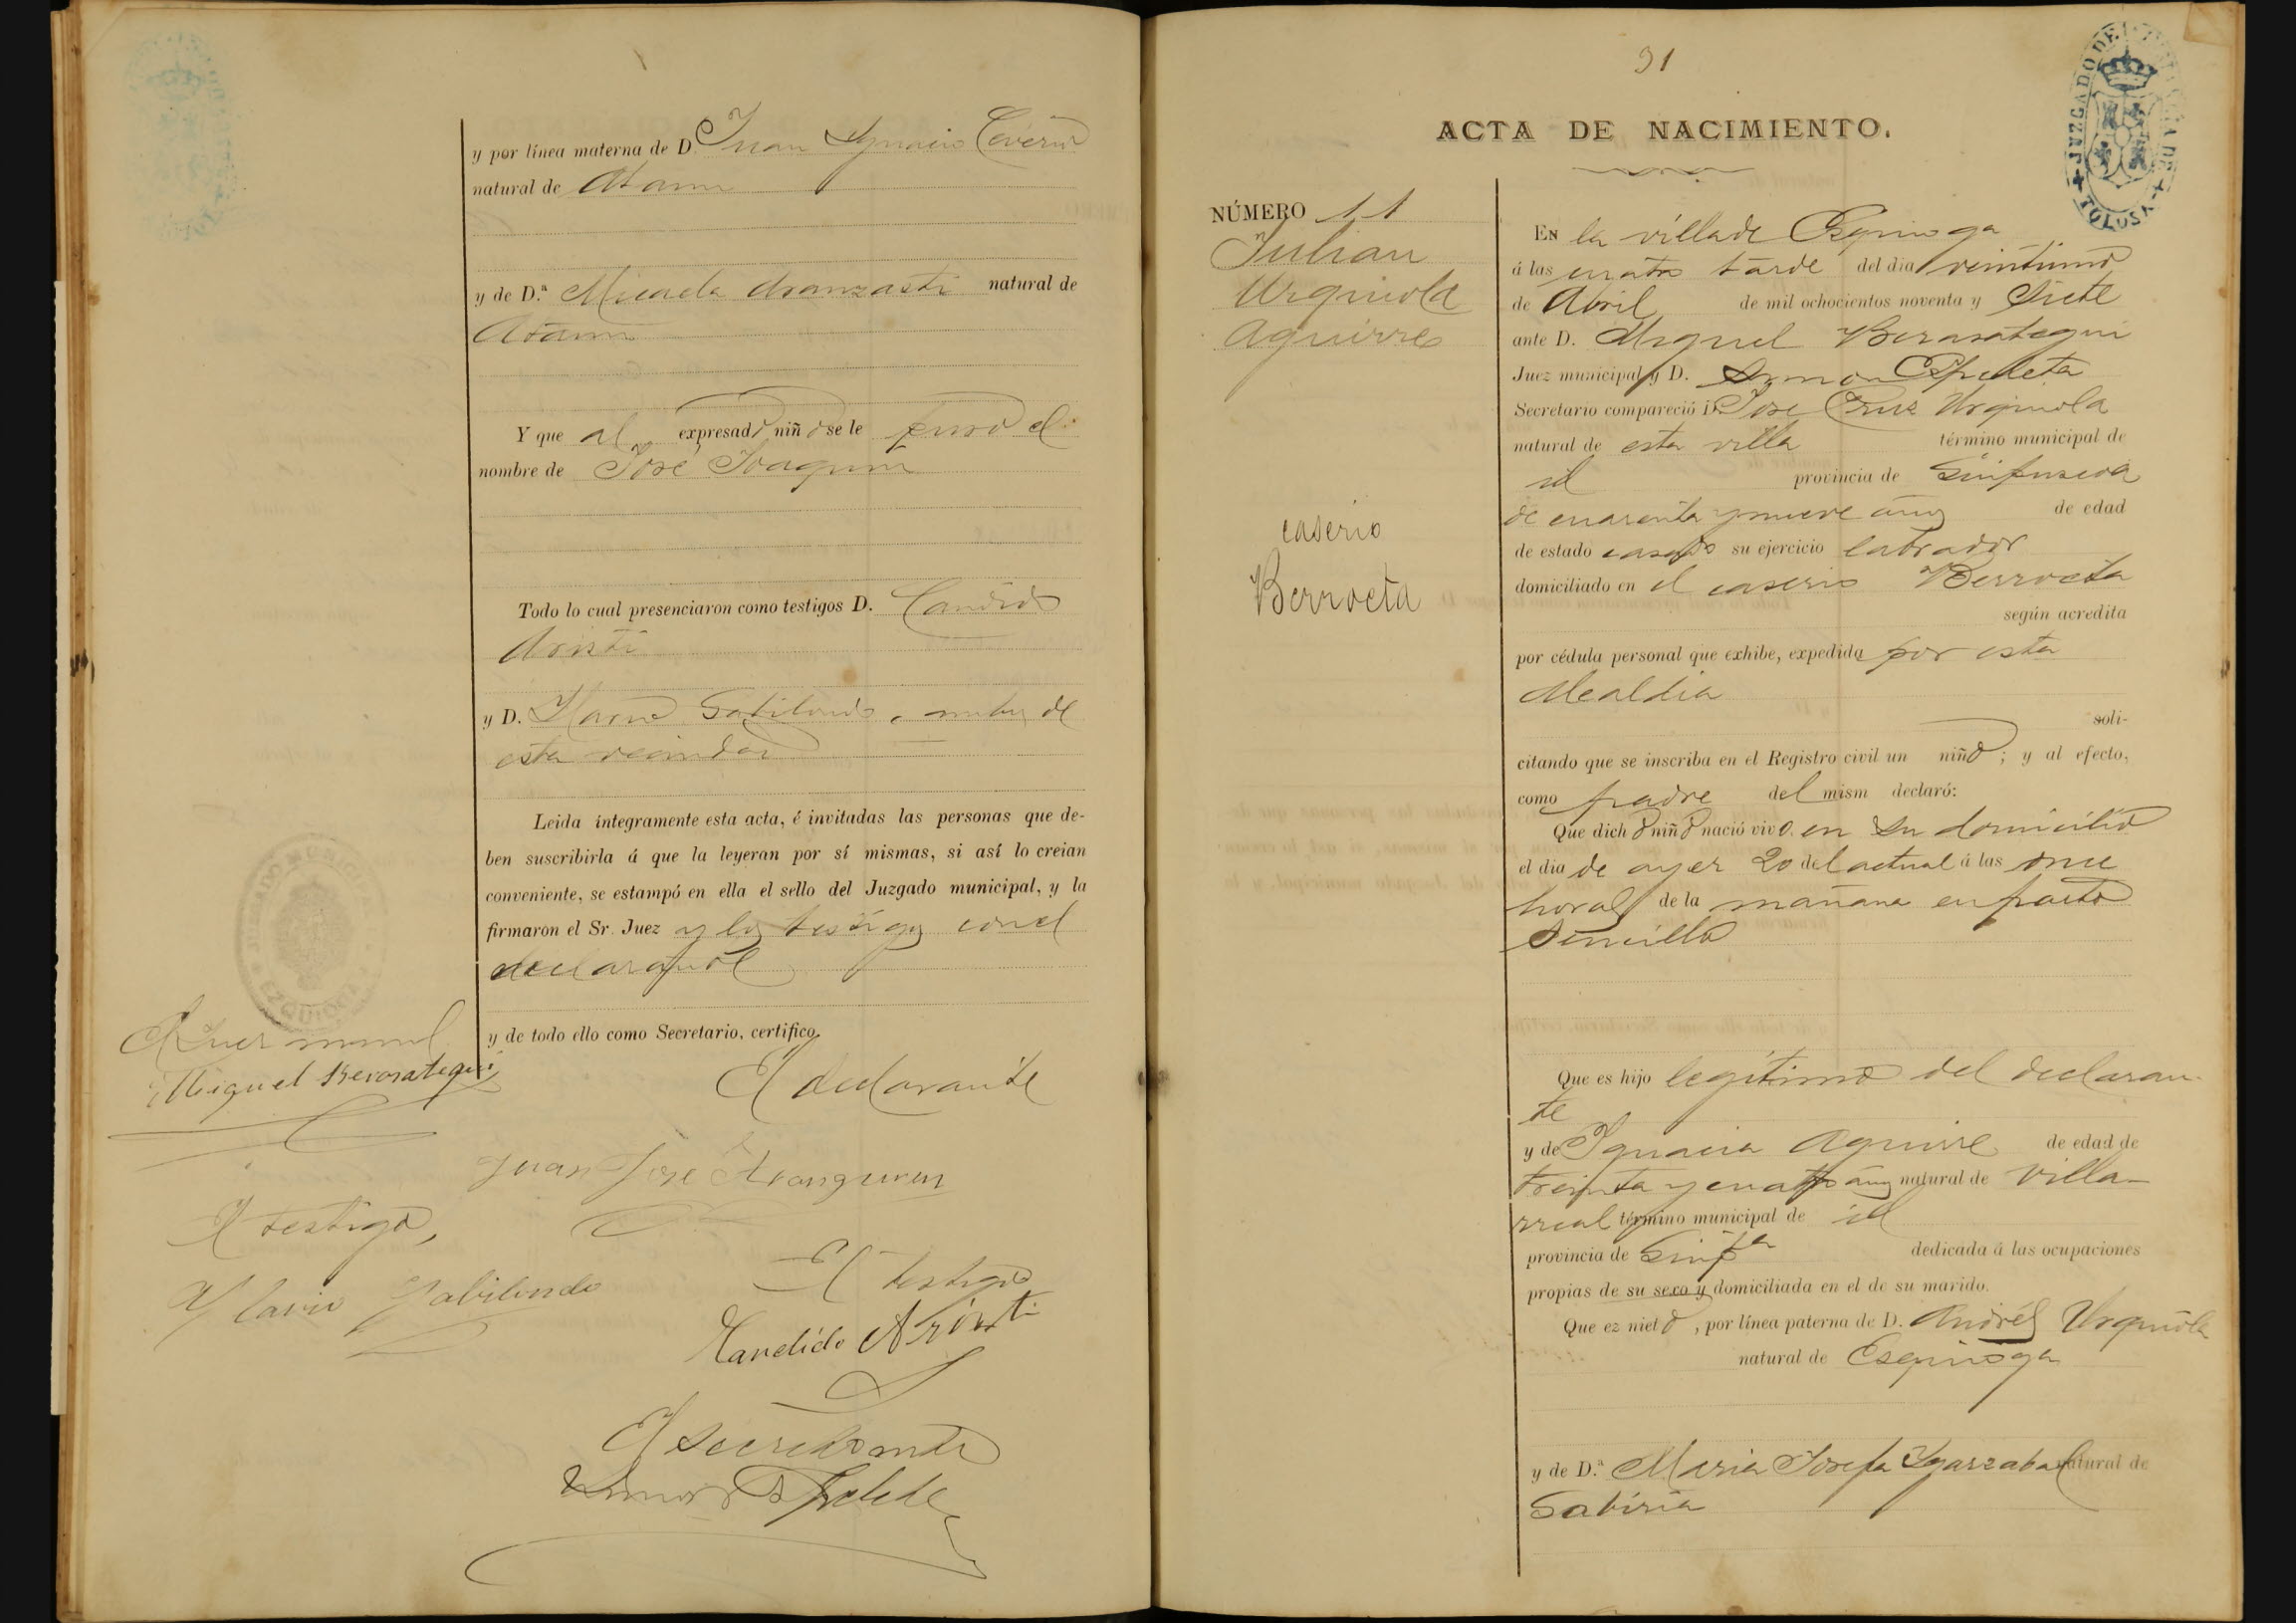 y por línea materna de D. Juan Ignacio
natural de Ataun
y de D.ª Micaela Aranzasti natural de
Ataun
Y que al expresado niño se le puso el
nombre de José Joaquin
Todo lo cual presenciaron como testigos D. Candido
Aristi
y D. Gabilondo, ambos de
esta vecindad
Leida íntegramente esta acta, é invitadas las personas que de-
ben suscribirla á que la leyeran por sí mismas, si así lo creian
conveniente, se estampó en ella el sello del Juzgado municipal, y la
firmaron el Sr. Juez y los testigos con el
declarante
y de todo ello como Secretario, certifico.
JUZGADO MUNICIPAL
EZQUIOGA
El Juez
Miguel Berasategui
El declarante
Juan José Aranguren
El testigo,
Gabilondo
El testigo
Candido Aristi
El Secretario
Espeleta
31
JUZGADO DE TOLOSA
ACTA DE NACIMIENTO.
NÚMERO 11
Julian
Urquiola
Aguirre
caserio
Berroeta
En la villa de Ezquioga
á las cuatro tarde del dia veintiuno
de Abril de mil ochocientos noventa y siete
ante D. Miguel Berasategui
Juez municipal y D. Espeleta
Secretario compareció D. Jose Cruz Urquiola
natural de esta villa término municipal de
id provincia de Guipuzcoa
de cuarenta y nueve años de edad
de estado casado su ejercicio labrador
domiciliado en el caserio Berroeta
según acredita
por cédula personal que exhibe, expedida por esta
Alcaldia
soli-
citando que se inscriba en el Registro civil un niño; y al efecto,
como padre del mism declaró:
Que dicho niño nació vivo en su domicilio
el dia de ayer 20 del actual á las once
horas de la mañana en parto
sencillo
Que es hijo legítimo del declaran-
te
y de Ignacia Aguirre de edad de
treinta y cuatro años natural de Villa-
rreal término municipal de id
provincia de Guipª dedicada á las ocupaciones
propias de su sexo y domiciliada en el de su marido.
Que ez nieto, por línea paterna de D. Andrés Urquiola
natural de Ezquioga
y de D.ª Maria Josefa Ygarzabal natural de
Gabiria